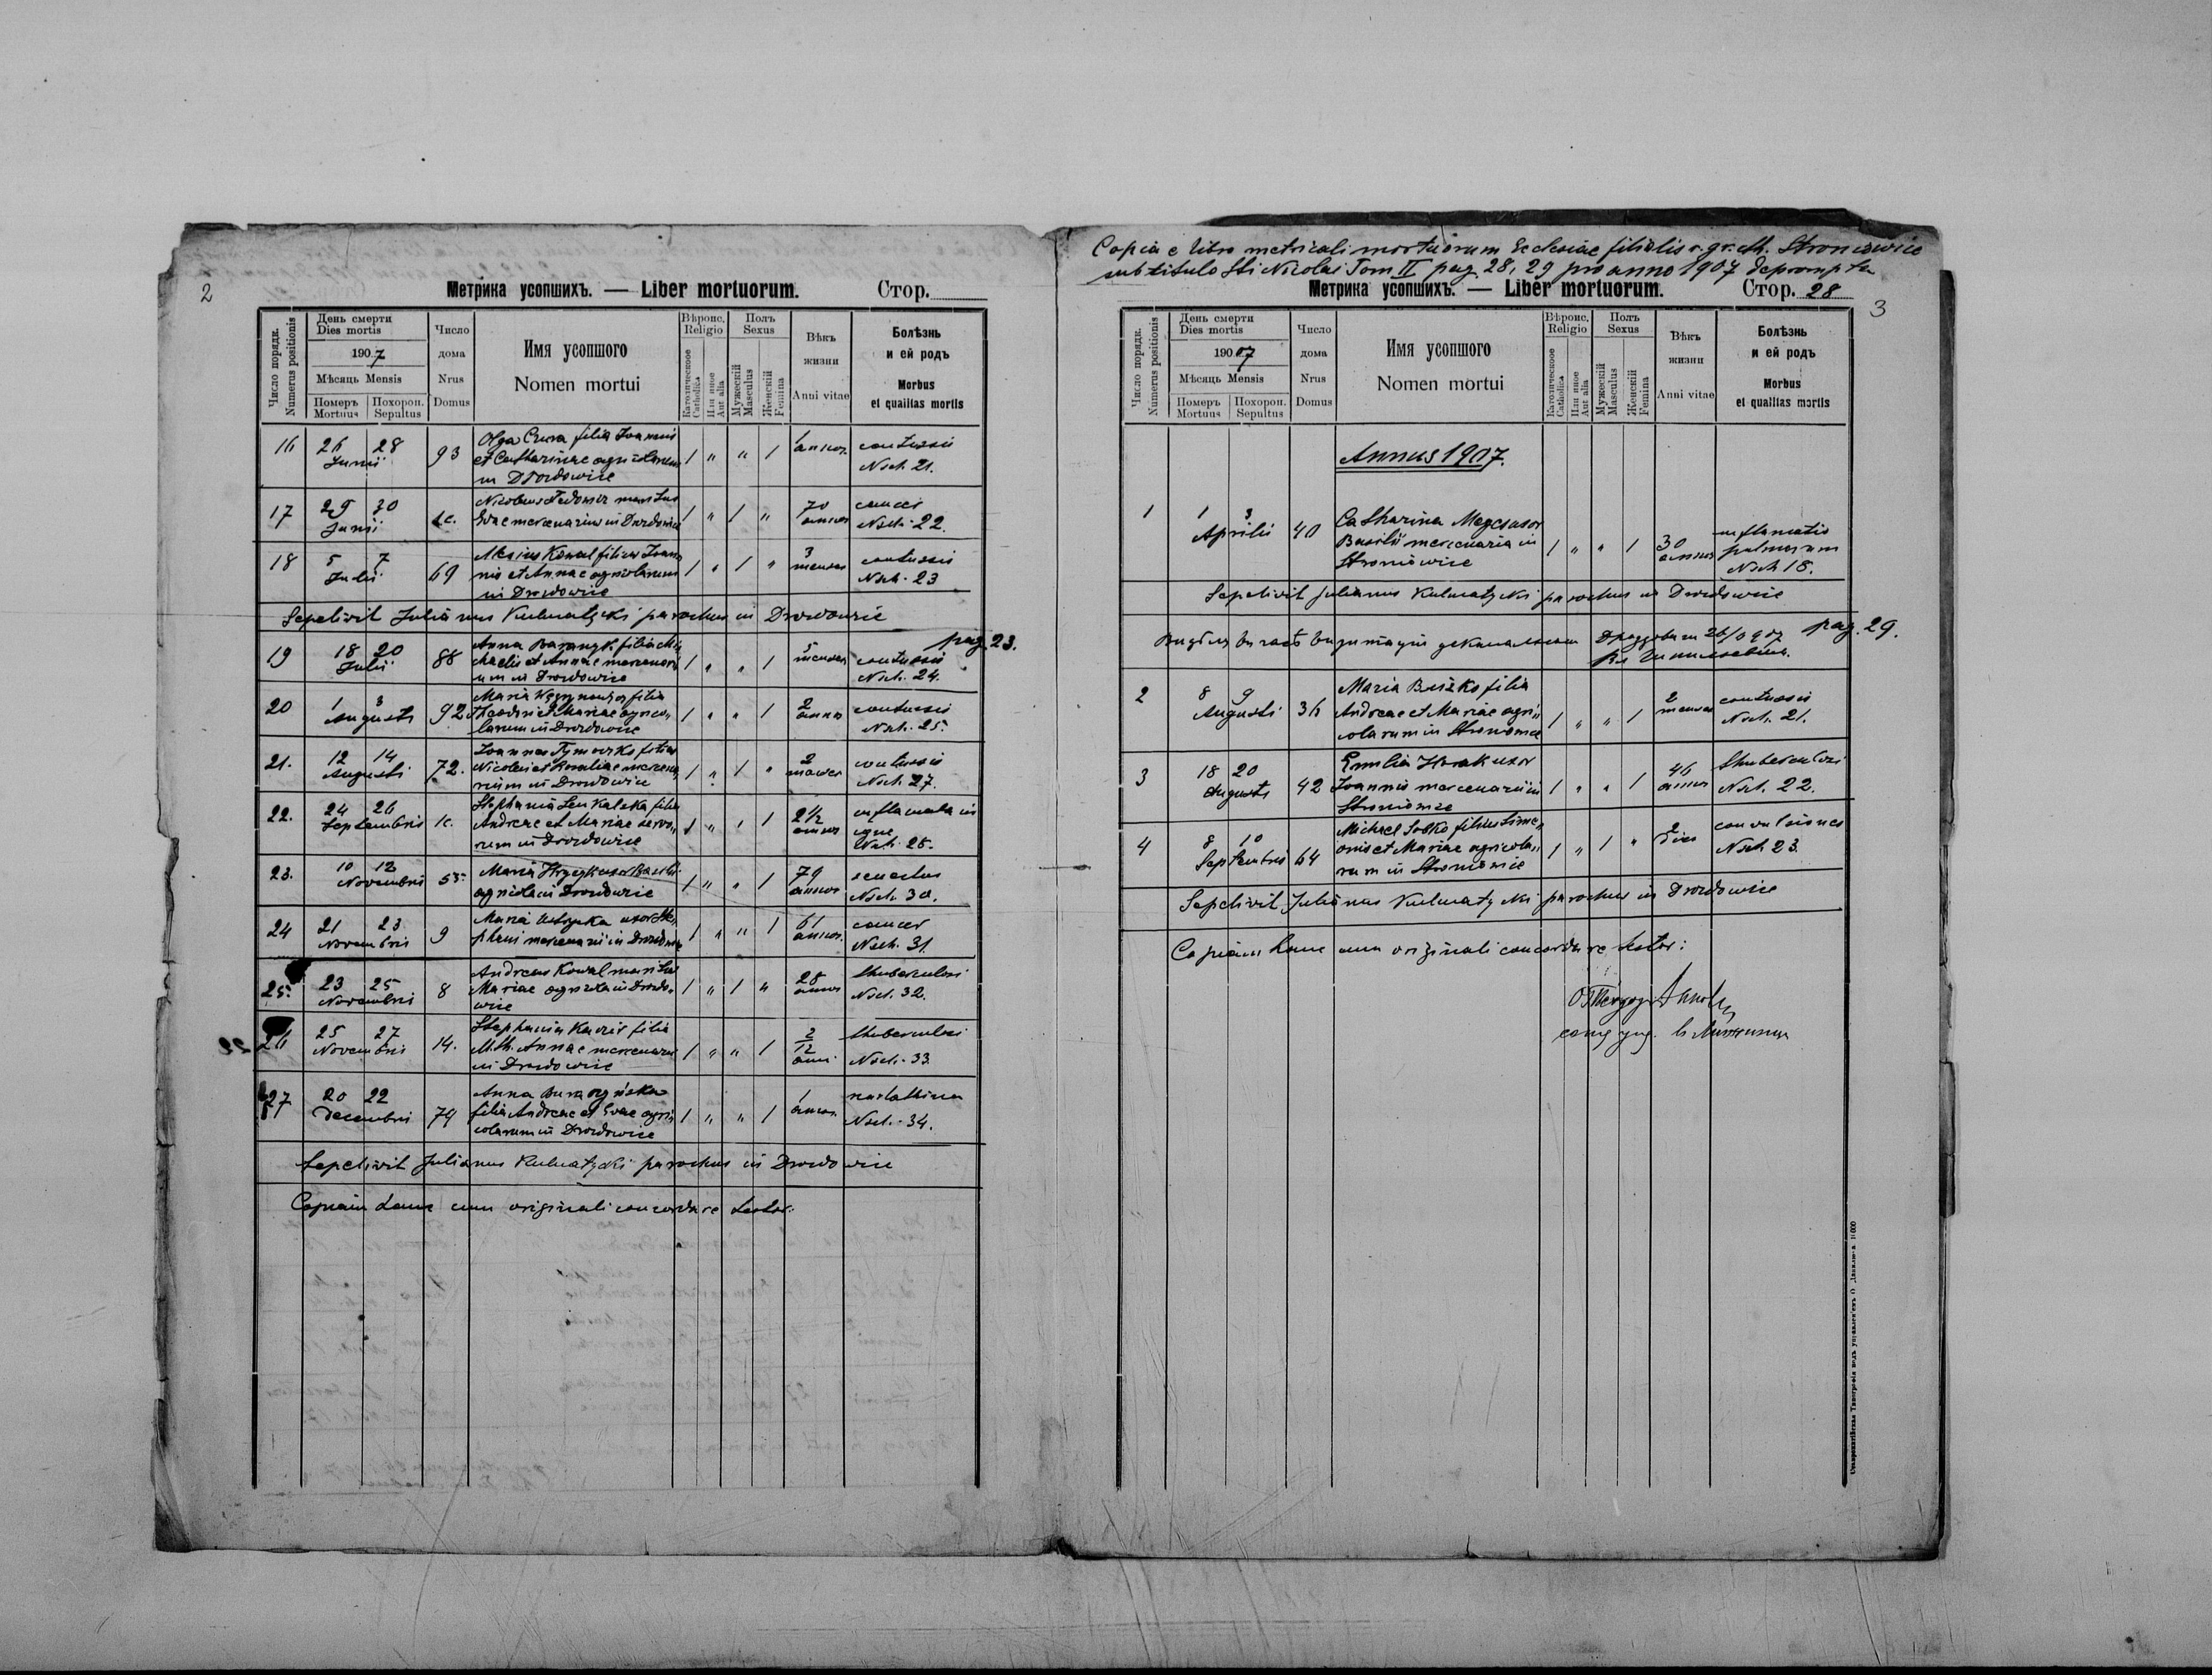 2
Метрика усопшихъ. — Liber mortuorum. Стор.
Число порядк. Numerus positionis
День смерти Dies mortis
1907
Мѣсяць Mensis
Померъ Mortuus
Похорон. Sepultus
Число дома Nrus Domus
Имя усопшого Nomen mortui
Вѣроис. Religio
Католическое Catholica
Или иное Aut alia
Полъ Sexus
Мужескій Masculus
Женскій Femina
Вѣкъ жизни Anni vitae
Болѣзнь и ей родъ Morbus et qualitas mortis
16 26 28 Junii 93 Olga filia Joannis
et Catharinae agricolarum
in Drozdowice
1 " " 1 1 annor. contussis
Nsch. 21.
17 29 30 Junii Nicolaus maritus
Evae mercenarius in Drozdowice
1 " 1 " 70 annor cancer
Nsch. 22.
18 5 7 Julii 69 Kowal filius Joan
nis et Annae agricolarum
in Drozdowice
1 " 1 " 3 menses contussis
Nsch. 23
Sepelivit Julianus Kulmatycki parochus in Drozdowice
pag. 23.
19 18 20 Julii 88 Anna filia Mi
chaelis et Annae mercenari
um in Drozdowice
1 " " 1 5 menses contussis
Nsch. 24.
20 1 3 Augusti 92 Maria filia
Theodori et Mariae agrico
larum in Drozdowice
1 " " 1 2 annor contussis
Nsch. 25.
21. 12 14 Augusti 72. Joannes Tymoczko filius
Nicolai et Rosaliae mercena
rium in Drozdowice
1 " 1 " 2 contussis
Nsch. 27.
22. 24 26 Septembris Stephania filia
Andreae et Mariae servo
rum in Drozdowice
1 " " 1 2 1/2 annor inflamata in
igne
23. 10 12 Novembris 53. Maria uxor Basilii
agricola in Drozdowice
1 " " 1 79 annor senectus
Nsch. 30.
24 21 23 Novembris 9 Maria uxor Ste
phani mercenarii in Drozdowice
1 " " 1 61 annor. cancer
Nsch. 31.
25. 23 25 Novembris 8 Andreas Kowal maritus
Mariae agricola in Drozdo
wice
1 " 1 " 28 annor thuberculosi
Nsch. 32.
26 25 27 Novembris 14. Stephania filia
Annae mercenari
in Drozdowice
1 " " 1 2/12 anni thuberculosi
Nsch. 33
27 20 22 Decembris 74 Anna
filia Andreae et Evae agri
colarum in Drozdowice
1 " " 1 1 annor.
Nsch. 34.
Sepelivit Julianus Kulmatycki parochus in Drozdowice
Copiam hanc cum originali concordare testor:
Copia e libro metricali mortuorum Ecclesiae filialis r. gr. cth. Stroniowice
sub titulo Sti Nicolai Tom II pag. 28, 29 pro anno 1907 deprompta
Метрика усопшихъ. — Liber mortuorum. Стор. 28
3
Число порядк. Numerus positionis
День смерти Dies mortis
190 07
Мѣсяць Mensis
Померъ Mortuus
Похорон. Sepultus
Число дома Nrus Domus
Имя усопшого Nomen mortui
Вѣроис. Religio
Католическое Catholica
Или иное Aut alia
Полъ Sexus
Мужескій Masculus
Женскій Femina
Вѣкъ жизни Anni vitae
Болѣзнь и ей родъ Morbus et qualitas mortis
Annus 1907.
1 1 3 Aprilis 40 Catharina uxor
Basilii mercenaria in
Stroniowice
1 " " 1 30 annor inflamatio
pulmonum
Nsch 18.
Sepelivit Julianus Kulmatycki parochus in Drozdowice
pag. 29.
2 8 9 Augusti 36 Maria Buszko filia
Andreae et Mariae agri
colarum in Stroniowice
1 " " 1 2 menses contussis
Nsch. 21.
3 18 20 Augusti 42 Emilia Horak uxor
Joannis mercenarii in
Stroniowice
1 " " 1 46 annor thuberculosi
Nsch. 22.
4 8 10 Septembris 64 Michael Sobko filius Sime
onis et Mariae agricola
rum in Stroniowice
1 " 1 " 2 dies convulsiones
Nsch 23.
Sepelivit Julianus Kulmatycki parochus in Drozdowice
Copiam hanc cum originali concordare testor: